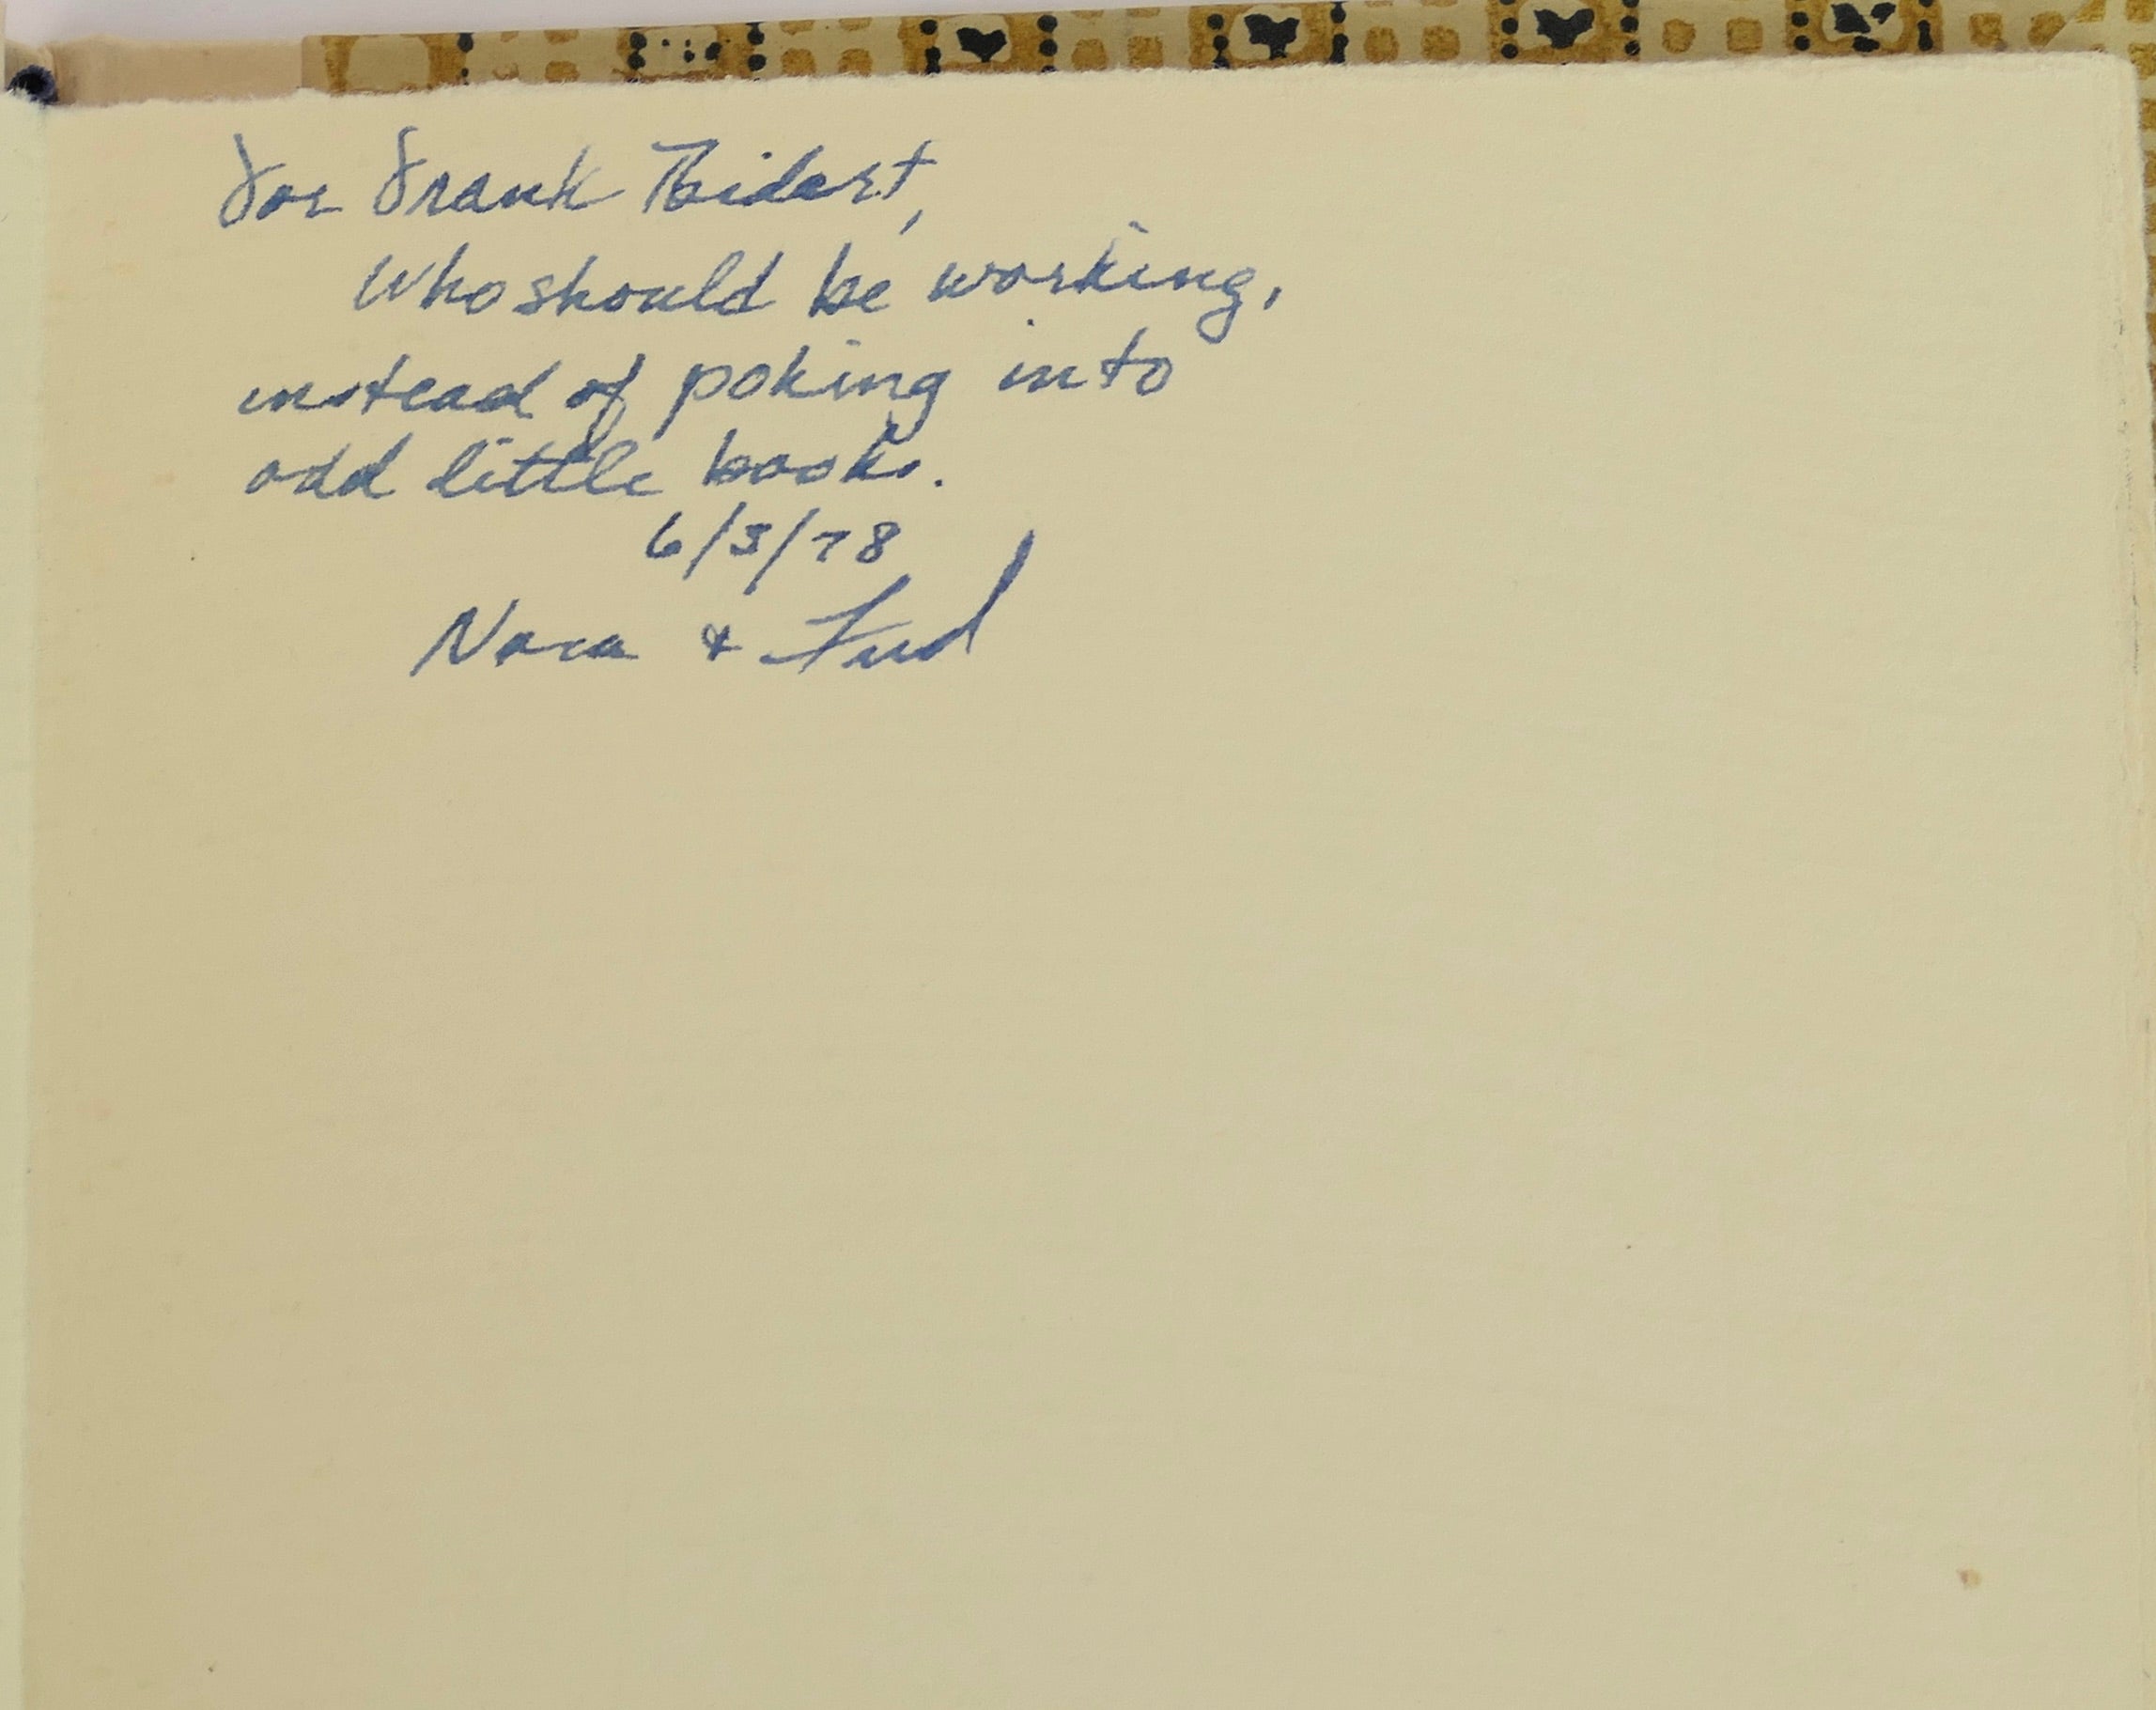 For Frank Bidart,
Who should be working,
instead of poking into
odd little books.
6/3/78
Nora &